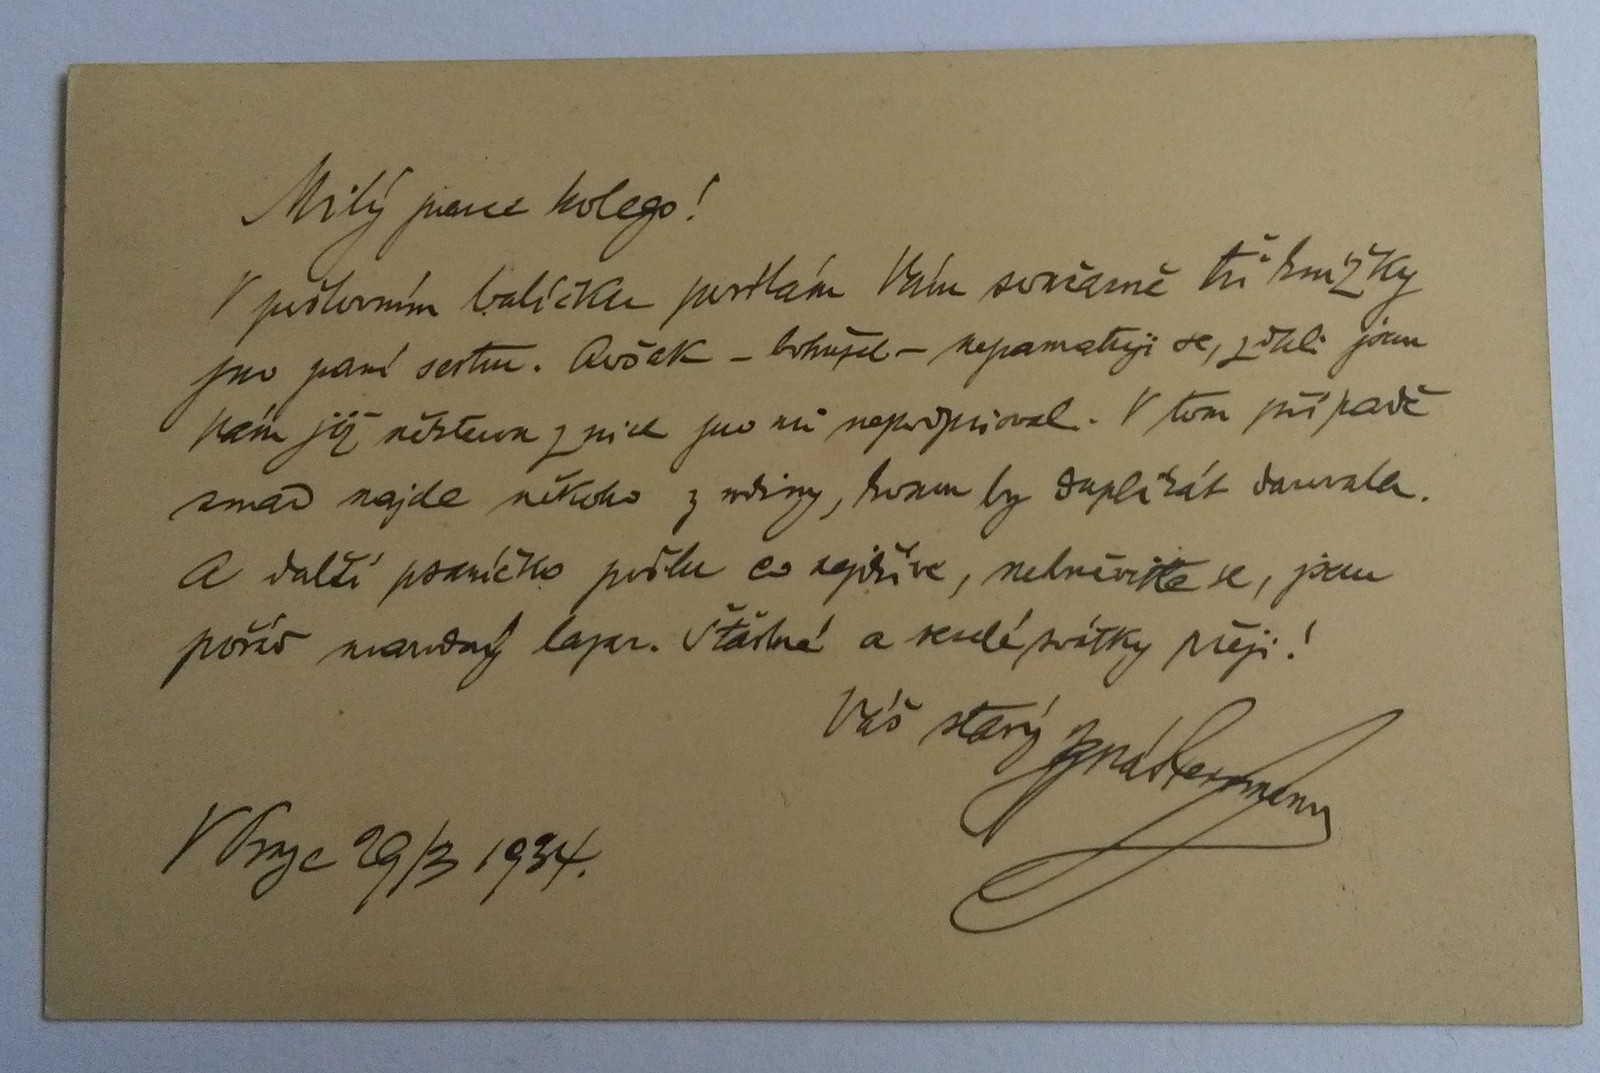 Milý pane kolego!
V poštovním balíčku posílám Vám současně tři knížky
pro paní sestru. Avšak – bohužel – nepamatuji se, zdali jsem
Vám již některou z nich pro ni nepodpisoval. V tom případě
snad najde někoho z rodiny, komu by duplikát darovala.
A další psaníčko pošlu co nejdříve, nehněvejte se, jsem
pořád marodný lazar. Šťastné a veselé svátky přeji!
Váš starý Ignát Herrmann
V Praze 29/3 1934.